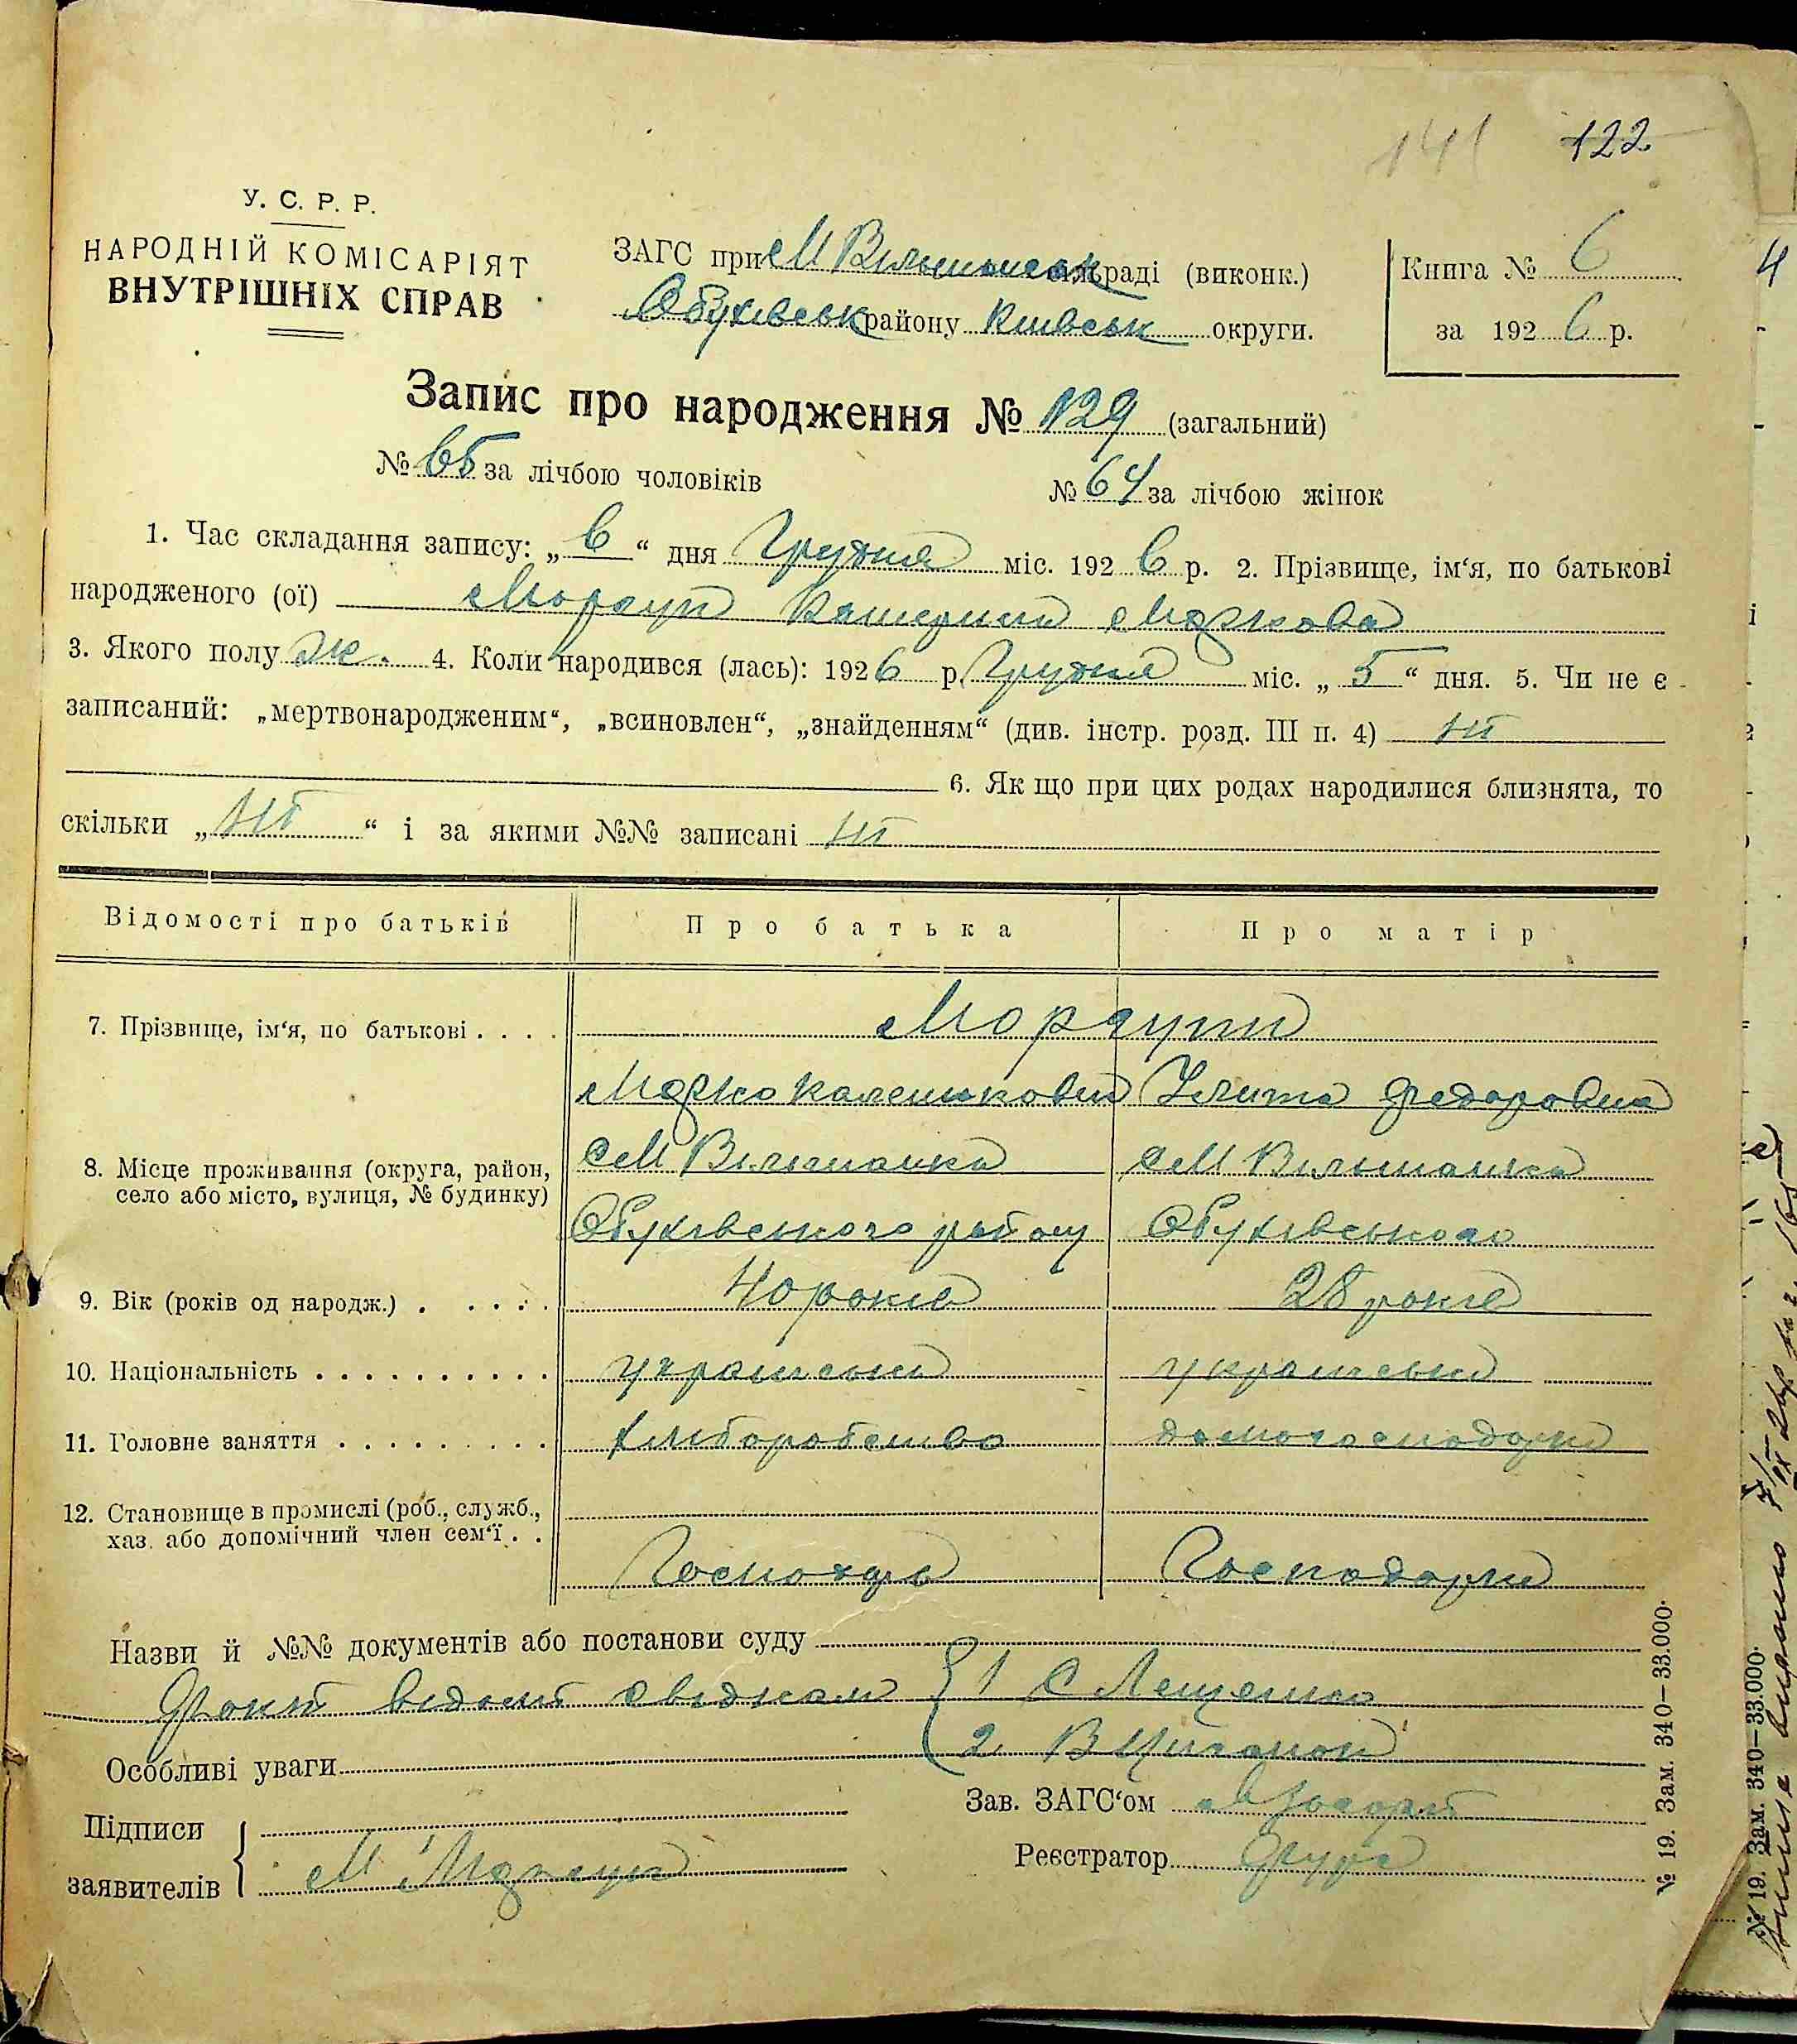 141 122
У. С. Р. Р.
НАРОДНІЙ КОМІСАРІЯТ
ВНУТРІШНІХ СПРАВ
ЗАГС при М Вильшанськ раді (виконк.)
Обухівськ району Київськ округи.
Книга № 6
за 1926 р.
Запис про народження № 129 (загальний)
№ 65 за лічбою чоловіків № 64 за лічбою жінок
1. Час складання запису: „6“ дня Грудня міс. 1926 р. 2. Прізвище, ім‘я, по батькові
народженого (ої) Катерина Маркова
3. Якого полу ж. 4. Коли народився (лась): 1926 р. Грудня міс. „5“ дня. 5. Чи не є
записаний: „мертвонародженим“, „всиновлен“, „знайденням“ (див. інстр. розд. III п. 4) ні
6. Як що при цих родах народилися близнята, то
скільки „ні“ і за якими №№ записані ні
Відомості про батьків Про батька Про матір
7. Прізвище, ім‘я, по батькові . . . .
Марко Улита Федоровна
8. Місце проживання (округа, район,
село або місто, вулиця, № будинку)
М Вильшанка М Вильшанка
Обухівського району Обухівського
9. Вік (років од народж.) . . . . . 40 років 28 років
10. Національність . . . . . . . . . . українськи українськи
11. Головне заняття . . . . . . . . . хліборобство домогосподарка
12. Становище в промислі (роб., служб.,
хаз. або допомічний член сем‘ї. . .
Господарь Господарка
Назви й №№ документів або постанови суду
Факт відомт свідкам { 1 С Лещенко
2. В Циганок
Особливі уваги
Підписи
заявителів { М
Зав. ЗАГС‘ом
Реєстратор
№ 19. Зам. 340—33.000.
№ 19. Зам. 340—33.000.